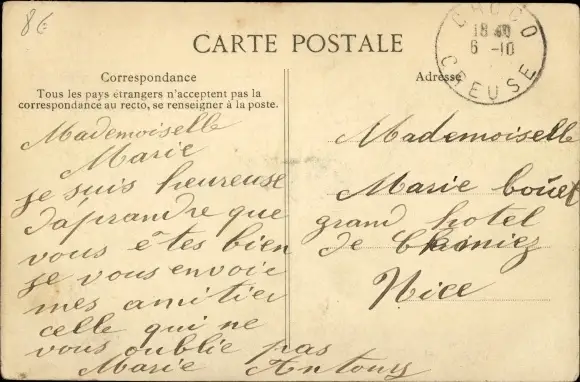 86
CARTE POSTALE
Correspondance
Tous les pays étrangers n'acceptent pas la
correspondance au recto, se renseigner à la poste.
Mademoiselle
Marie
je suis heureuse
d'aprandre que
vous êtes bien
je vous envoie
mes amitier
celle qui ne
vous oublie pas
Marie Antony
Adresse
CROCQ
18 40
6 -10
CREUSE
Mademoiselle
Marie bouet
grand hotel
de
Nice